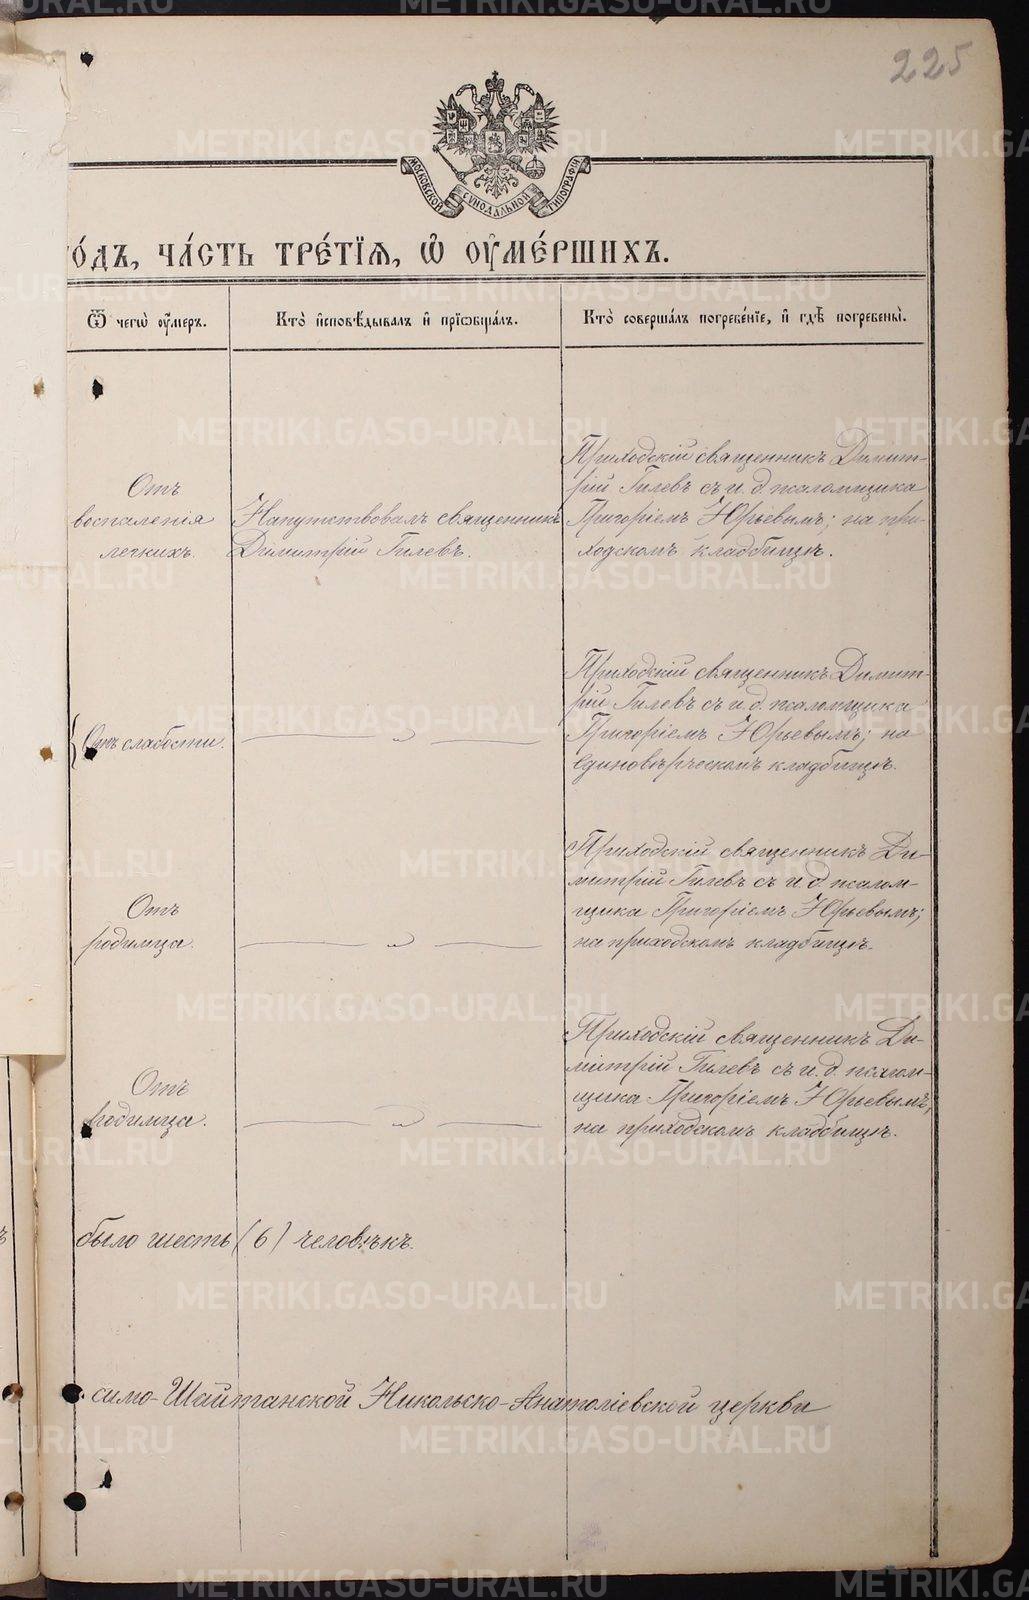 225
МОСКОВСКОЙ СѴНОДАЛЬНОЙ ТИПОГРАФІИ
го́дъ, ча́сть тре́тїѧ, ѡ҆ ᲂу҆ме́ршихъ.
Ѿ чегѡ̀ ᲂу҆́меръ.
Кто̀ и҆сповѣ́дывалъ и҆ прїѡбща́лъ.
Кто̀ соверша́лъ погребе́нїе, и҆ гдѣ̀ погребены̀.
Отъ
воспаленія
легкихъ.
Напутствовалъ священникъ
Димитрій Гилевъ.
Приходскій священникъ Димит-
рій Гилевъ съ и. д. псаломщика
Григоріемъ Юрьевымъ; на при-
ходскомъ кладбищѣ.
Отъ слабости.
— и —
Приходскій священникъ Димит-
рій Гилевъ съ и. д. псаломщика
Григоріемъ Юрьевымъ; на
единовѣрческомъ кладбищѣ.
Отъ
родимца.
— и —
Приходскій священникъ Ди-
митрій Гилевъ съ и. д. псалом-
щика Григоріемъ Юрьевымъ;
на приходскомъ кладбищѣ.
Отъ
родимца.
— и —
Приходскій священникъ Ди-
митрій Гилевъ съ и. д. псалом-
щика Григоріемъ Юрьевымъ;
на приходскомъ кладбищѣ.
было шесть (6) человѣкъ.
симо-Шайтанской Никольско-Анатоліевской церкви
METRIKI.GASO-URAL.RU